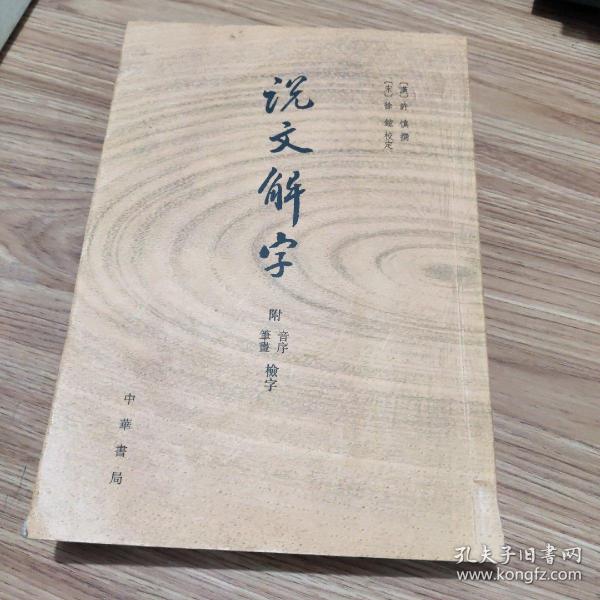 〔漢〕許慎撰
〔宋〕徐鉉校定
说文解字
附 音序 筆畫 檢字
中華書局
孔夫子旧书网
www.kongfz.com